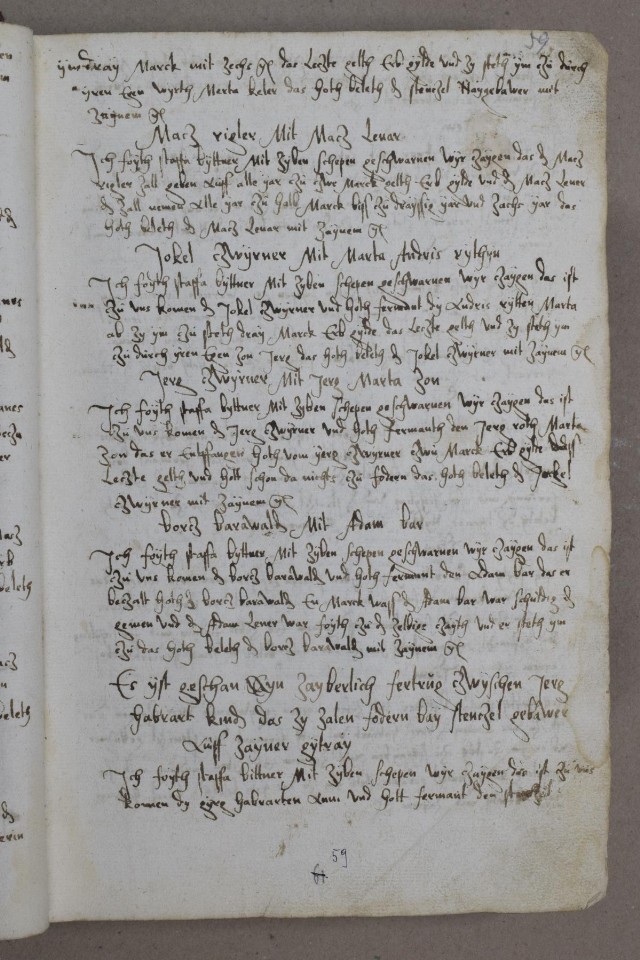 59
ym dray Marck mit zechs gl das Leczte gelth Erb gylde vnd zy steth ym zu durch
yren Egen wyrth Merta keler das hoth beleth d stenczel Naygebawer mit
zaynem gl
Macz rigler Mit Macz Lenar
Ich foyth staffa byttner Mit zyben schepen geschwarnen wyr zaygen das d Macz
rigler zall geben Auff alle yar zu zwe Marck gelth Erb gylde vnd d Macz Lener
d zall nemen Alle yar zu halb Marck biss zu drayssig yar vnd zachs yar das
hoth beleth d Macz Lenar mit zaynem gl
Jokel Zwyrner Mit Marta Andris rythyn
Ich foyth staffa byttner Mit zyben schepen geschwarnen wyr zaygen das ist
zu vns komen d Jokel zwyrner vnd hoth fermant dy Andris rytten Marta
ab zy ym zu steth dray Marck Erb gylde das Leczte gelth vnd zy steth ym
zu durch yren Egen zon Jerg das hoth beleth d Jokel zwyrner mit zaynem gl
Jerg Zwyrner Mit Jerg Marta zon
Ich foyth staffa byttner Mit zyben schepen geschwarnen wyr zaygen das ist
zu vns komen d Jerg zwyrner vnd hoth fermanth den Jerg roth Marta
zon das er Entffangen hoth vom yerg zwyrner zwu Marck Erb gylde
Leczte gelth vnd hott schon da nichts zu fodern das hoth beleth d Jockel
zwyrner mit zaynem gl
borcz barawald Mit Adam bar
Ich foyth staffa byttner Mit zyben schepen geschwarnen wyr zaygen das ist
zu vns komen d borcz barawald vnd hoth fermant den Adam bar das er
beczalt hoth d borcz barawald En Marck wass d Adam bar war schuldig d
gemen vnd d Adam Lener war foyth zu d zelbige zayth vnd er steth ym
zu das hoth beleth d borcz barwald mit zaynem gl
Es yst geschan Wyn zayberlich fertrug zwyschen Jerg
habrart kind das zy zalen fodern bay stenczel gebawer
Auff zayner gytray
Ich foyth staffa bittner Mit zyben schepen wyr zaygen das ist zu vns
komen dy yerg habrarten Ann vnd hott fermant den
59